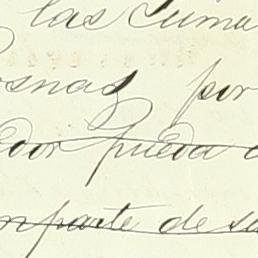 las Suma
osnas por
edor pueda
nparte de su